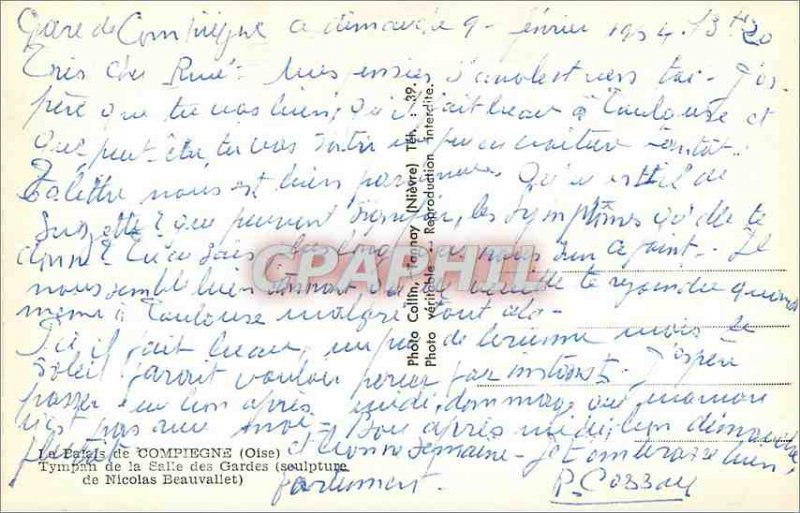 Gare de Compiègne ce dimanche 9 février 1954. 13H20
Très cher René. Mes envies s'envolent vers toi. J'es-
père que tu vas bien, qu'il fait beau à Toulouse et
que peut-être tu vas sortir un peu en voiture tantôt.
Ta lettre nous est bien parvenue. Qu'en est-il de
Suzette? que peuvent signifier les symptômes qu'elle te
donne? nous sur ce point. Il
nous semble bien de te rejoindre quand
même à Toulouse malgré tout cela.
Ici il fait beau, un peu de brume mais le
soleil paraît vouloir percer par instants. J'espère
passer un bon après midi, dommage que maman
n'est pas avec moi. Bon après midi, bon dimanche
et bonne semaine. Je t'embrasse bien
fortement. P. Cossou
Le Palais de COMPIEGNE (Oise)
Tympan de la Salle des Gardes (sculpture
de Nicolas Beauvallet)
Photo Collin, Tannay (Nièvre) Tél. : 39.
Photo véritable - Reproduction interdite.
CPAPHIL